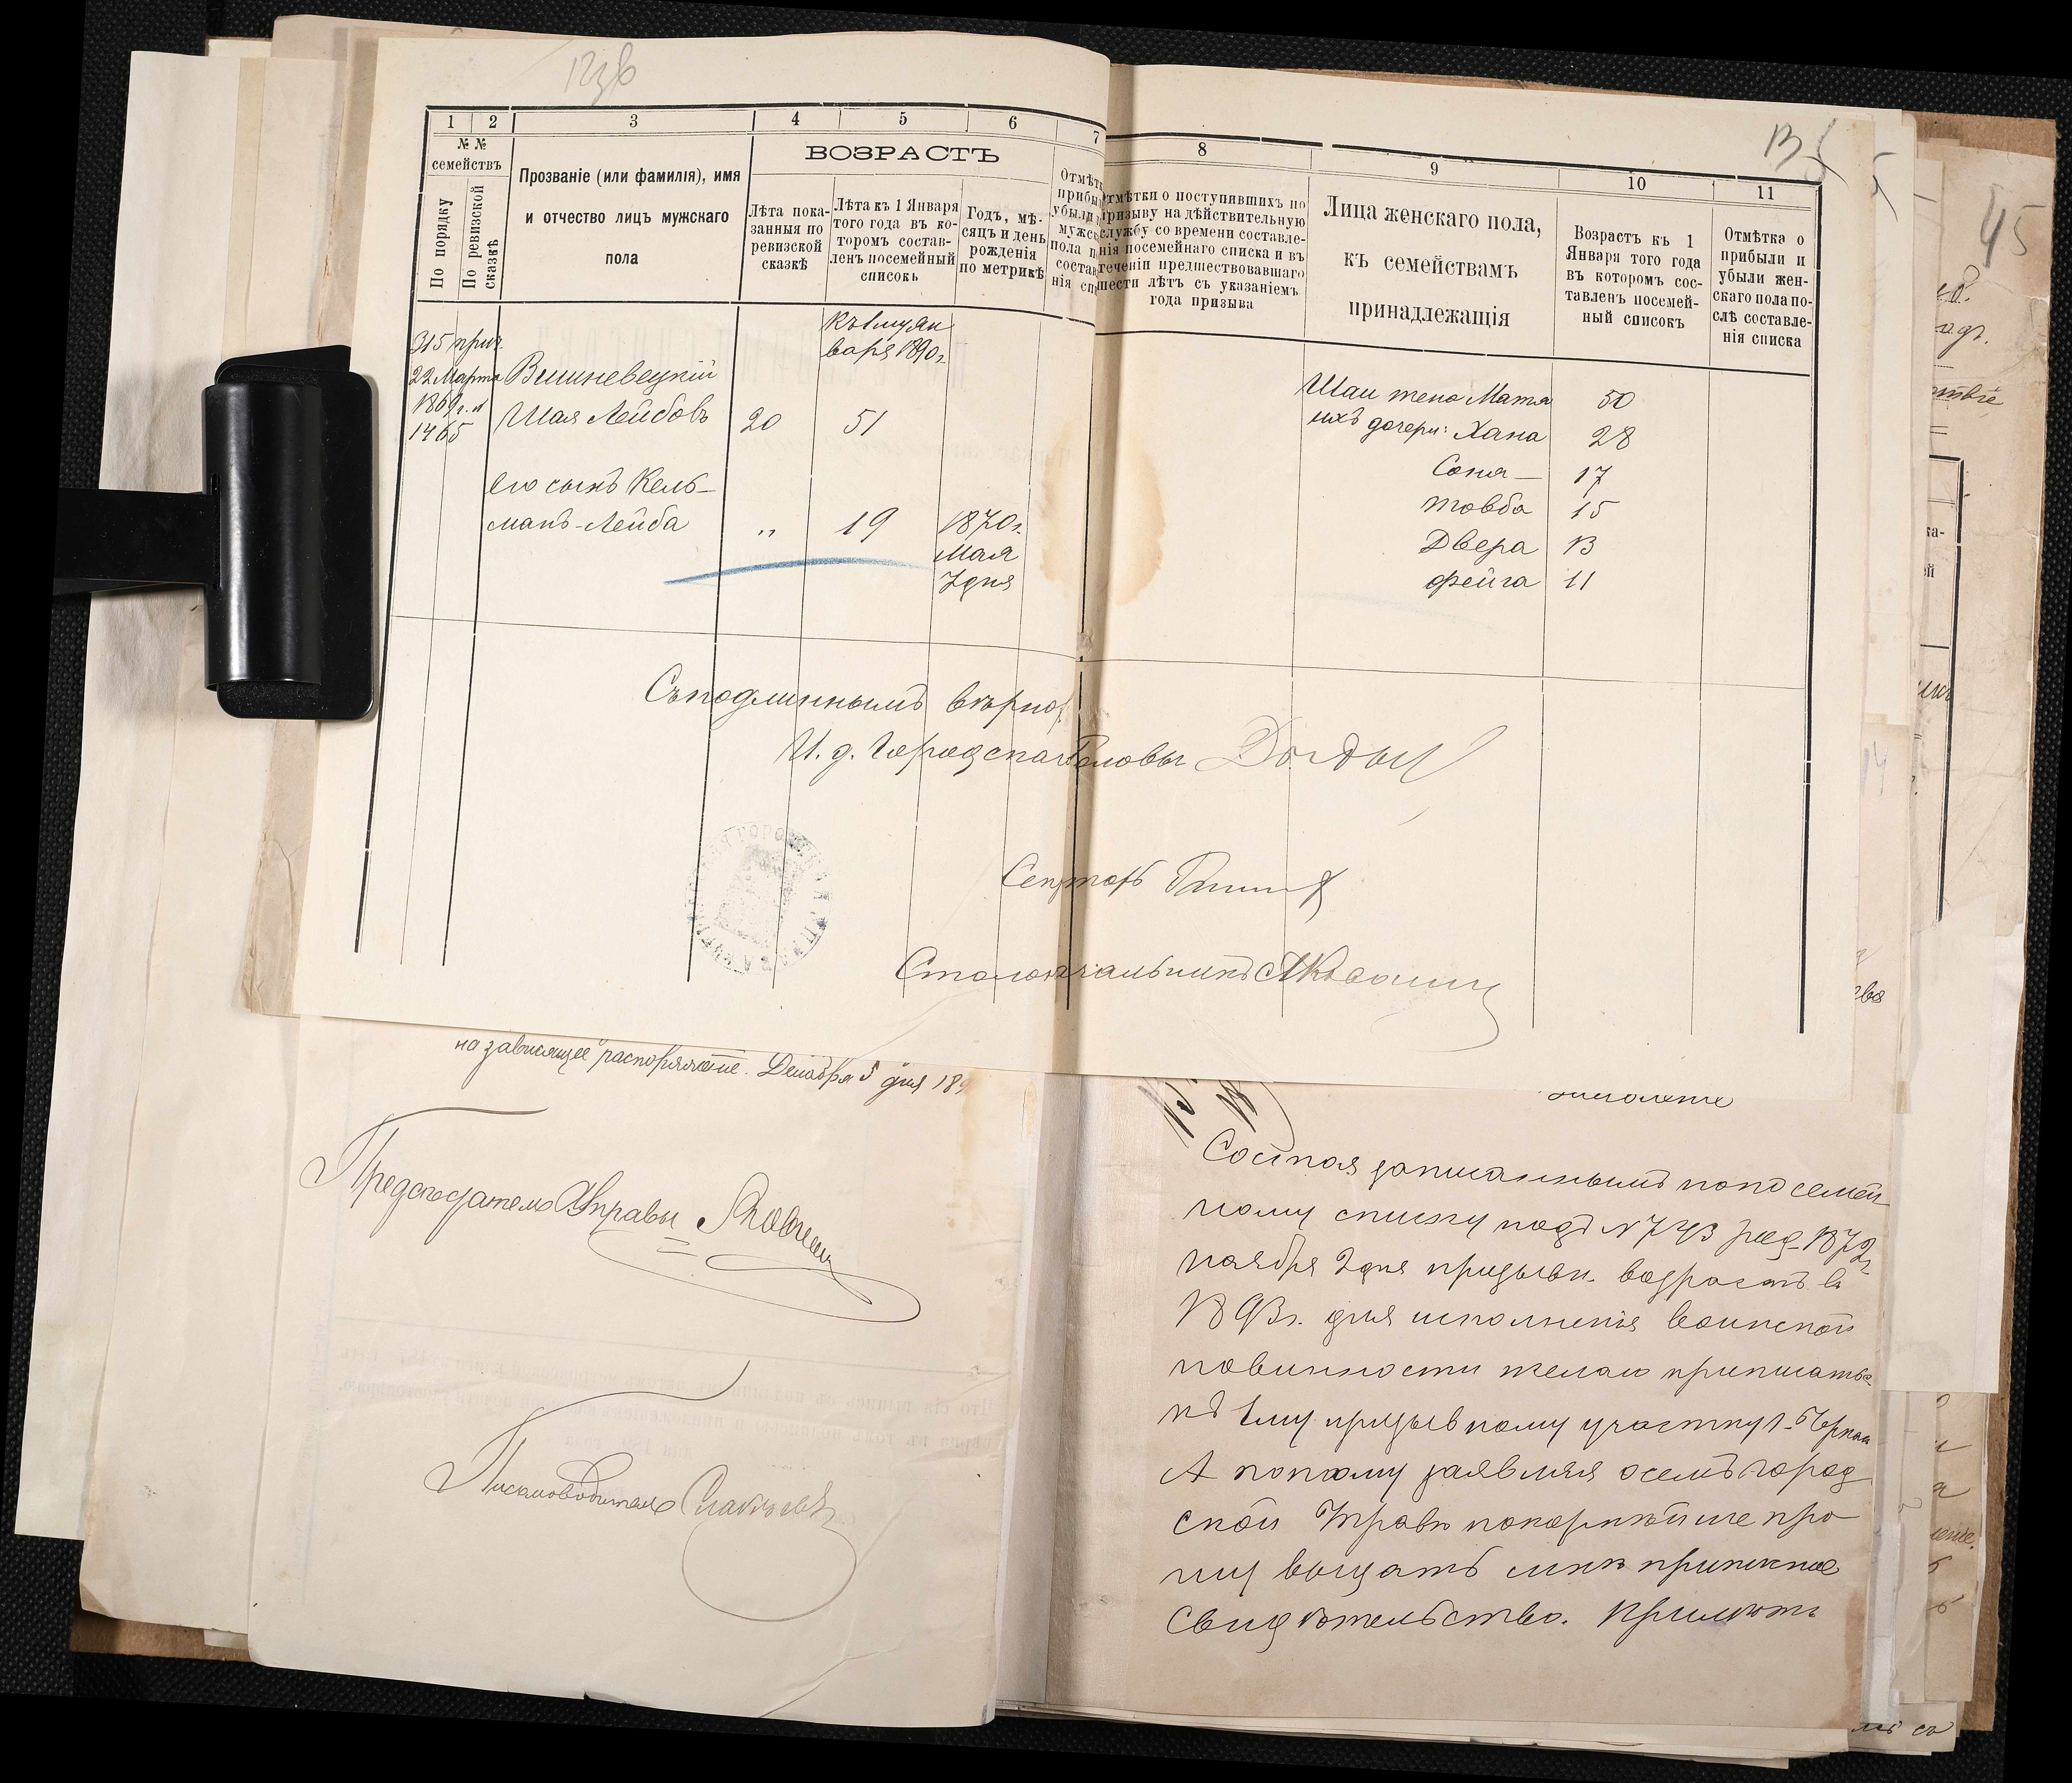 1 2 3 4 5 6 7
№ №
семействъ
По порядку
По ревизской сказкѣ
Прозваніе (или фамилія), имя
и отчество лицъ мужскаго
пола
ВОЗРАСТЪ
Лѣта пока-
занныя по
ревизской
сказкѣ
Лѣта къ 1 Января
того года въ ко-
торомъ состав-
ленъ посемейный
списокъ
Годъ, мѣ-
сяцъ и день
рожденія
по метрикѣ
315 прич.
22 Марта
1869 г. №
1465
Къ 1му Ян
варя 1890 г.
Вишневецкій
Шая Лейбовъ 20 51
его сынъ Кель-
манъ-Лейба „ 19 1870 г.
Мая
7 дня
8 9 10 11
Отмѣтки о поступившихъ по
призыву на дѣйствительную
службу со времени составле-
нія посемейнаго списка и въ
теченіи предшествовавшаго
шести лѣтъ съ указаніемъ
года призыва
Лица женскаго пола,
къ семействамъ
принадлежащія
Возрастъ къ 1
Января того года
въ которомъ сос-
тавленъ посемей-
ный списокъ
Отмѣтка о
прибыли и
убыли жен-
скаго пола по-
слѣ составле-
нія списка
Шаи жена Матя 50
ихъ дочери: Хана 28
Соня — 17
Товба 15
Двера 13
Фейга 11
Съ подлиннымъ вѣрно:
И. д. Городскаго Головы
Секретарь
Столоначальникъ
на зависящее распоряженіе. Декабря 5 дня 189
Предсѣдатель Управы
Письмоводитель
45
Состоя записаннымъ по посемей-
ному списку подъ № 743 род. 1872
ноября 2 дня призывн. возрастъ въ
1893 г. для исполненія воинской
повинности желаю приписаться
къ 1му призывному участку
А потому заявляя о семъ город
ской Управѣ покорнѣйше про
шу выдать мнѣ приписное
Свидѣтельство. Примѣты